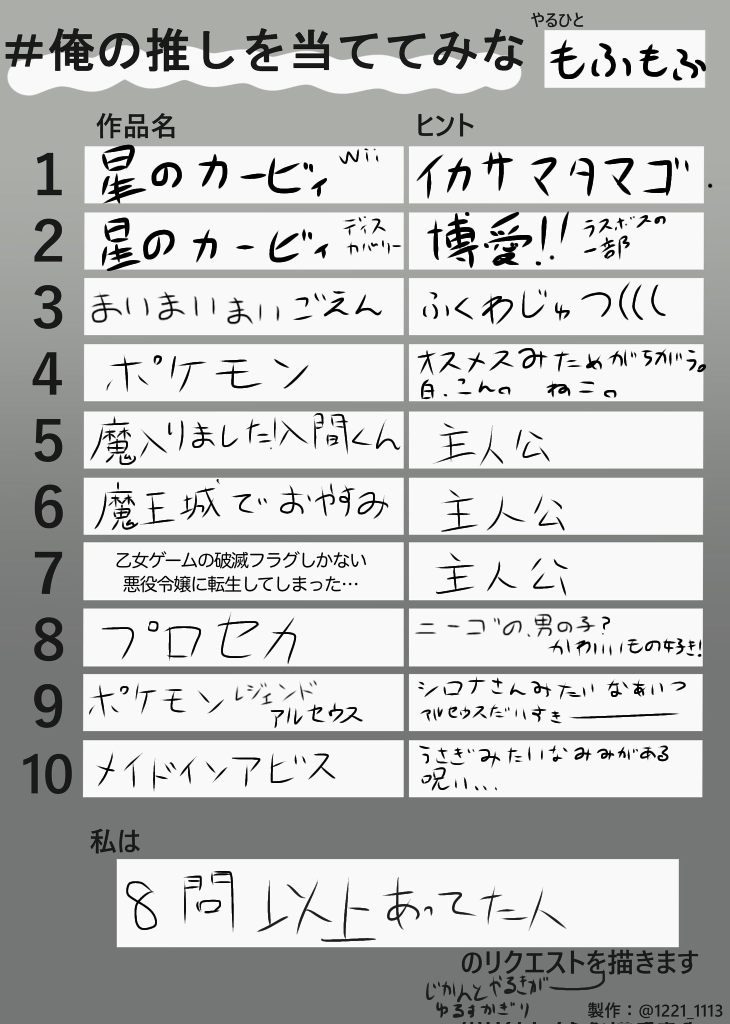 やるひと
#俺の推しを当ててみな
もふもふ
作品名 ヒント
1 星のカービィ Wii イカサマタマゴ.
2 星のカービィ ディスカバリー 博愛!! ラスボスの一部
3 まいまいまいごえん ふくわじゅつ(((
4 ポケモン オスメスみためがちがう。
白、こんの ねこ。
5 魔入りました!入間くん 主人公
6 魔王城でおやすみ 主人公
7 乙女ゲームの破滅フラグしかない
悪役令嬢に転生してしまった… 主人公
8 プロセカ ニーゴの、男の子?
かわいいもの好き!
9 ポケモンレジェンド
アルセウス シロナさんみたいなあいつ
アルセウスだいすき
10 メイドインアビス うさぎみたいなみみがある
呪い...
私は
8問以上あってた人
のリクエストを描きます
じかんとやるきが
ゆるすかぎり
製作:@1221_1113